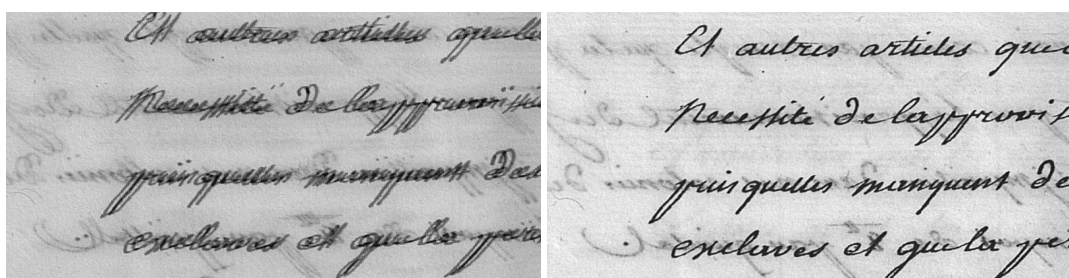 Et autres articles quelle
Necessité de lapprovissi
puisquelles manquent des
esclaves et quela
Et autres articles que
Necessité de lapprovis
puisquelles manquent de
esclaves et quela pe